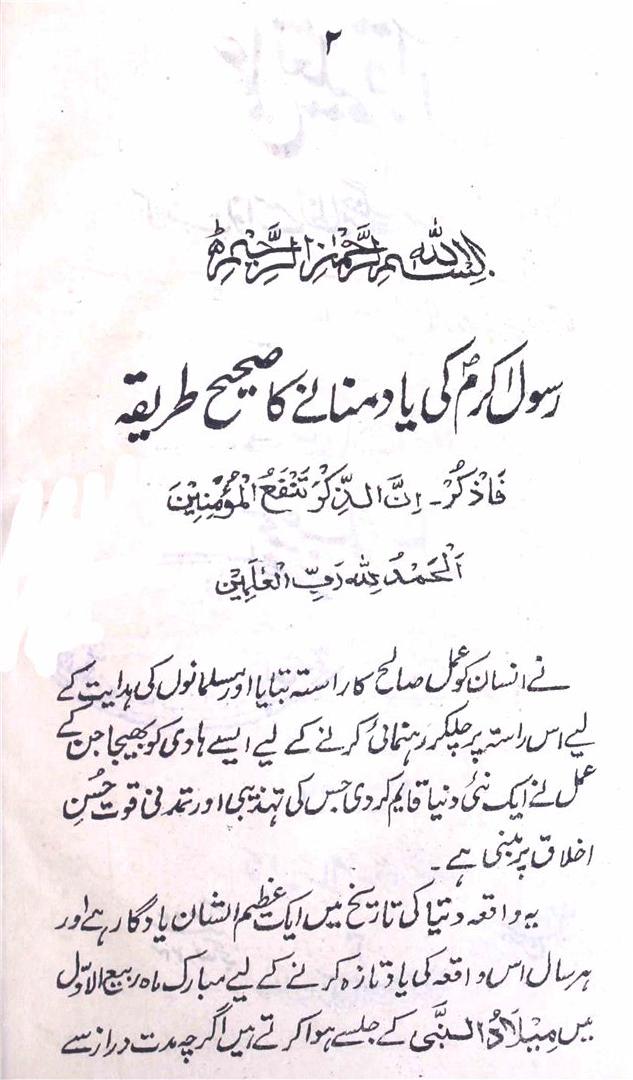 ۲
بِسْمِ اللهِ الرَّحْمٰنِ الرَّحِیْمِ ط
رسول اکرمؐ کی یاد منانے کا صحیح طریقہ
فَاذْکُرْ۔ اِنَّ الذِّکْرَ تَنْفَعُ الْمُؤْمِنِیْنَ
اَلْحَمْدُ لِلّٰہِ رَبِّ الْعٰلَمِیْنَ
نے انسان کو عمل صالح کا راستہ بتایا اور مسلمانوں کی ہدایت کے
لیے اس راستہ پر چلکر رہنمائی کرنے کے لیے ایسے ہادی کو بھیجا جن کے
عمل نے ایک نئی دنیا قایم کر دی جس کی تہذیبی اور تمدنی قوت حُسنِ
اخلاق پر مبنی ہے۔
یہ واقعہ دنیا کی تاریخ میں ایک عظیم الشان یادگار ہے اور
ہر سال اس واقعہ کی یاد تازہ کرنے کے لیے مبارک ماہ ربیع الاوّل
میں مِیْلَادُ النَّبِّی کے جلسے ہوا کرتے ہیں اگرچہ مدت دراز سے